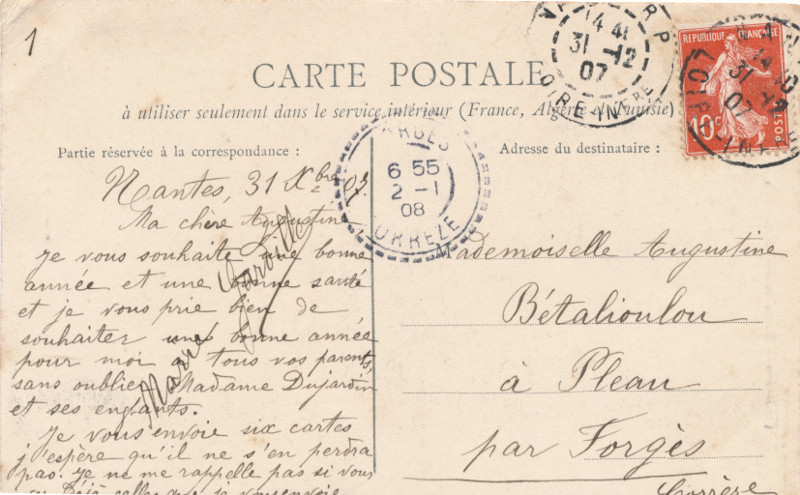 1
CARTE POSTALE
à utiliser seulement dans le service intérieur (France, Algérie et Tunisie)
Partie réservée à la correspondance :
Nantes, 31 Xbre 07
Ma chère Augustine
Je vous souhaite une bonne
année et une bonne santé
et je vous prie bien de
souhaiter une bonne année
pour moi tous vos parents,
sans oublier Madame Dujardin
et ses enfants.
Je vous envoie six cartes
j'espère qu'il ne s'en perdra
pas. Je ne me rappelle pas si vous
Déjà celles que je vous envoie
Marie
Adresse du destinataire :
Mademoiselle Augustine
Bétalioulou
à Pleau
par Forgès
Corrèze
14 41
31 -12
07
LOIRE-INFRE
REPUBLIQUE FRANÇAISE
10c
POSTES
14 10
31 -12
07
FORGES
6 55
2 -1
08
CORREZE